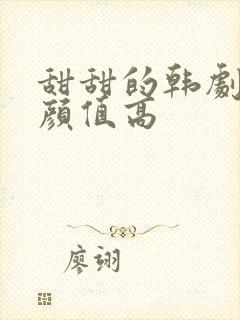 甜甜的韩劇
顔值高
廖翊